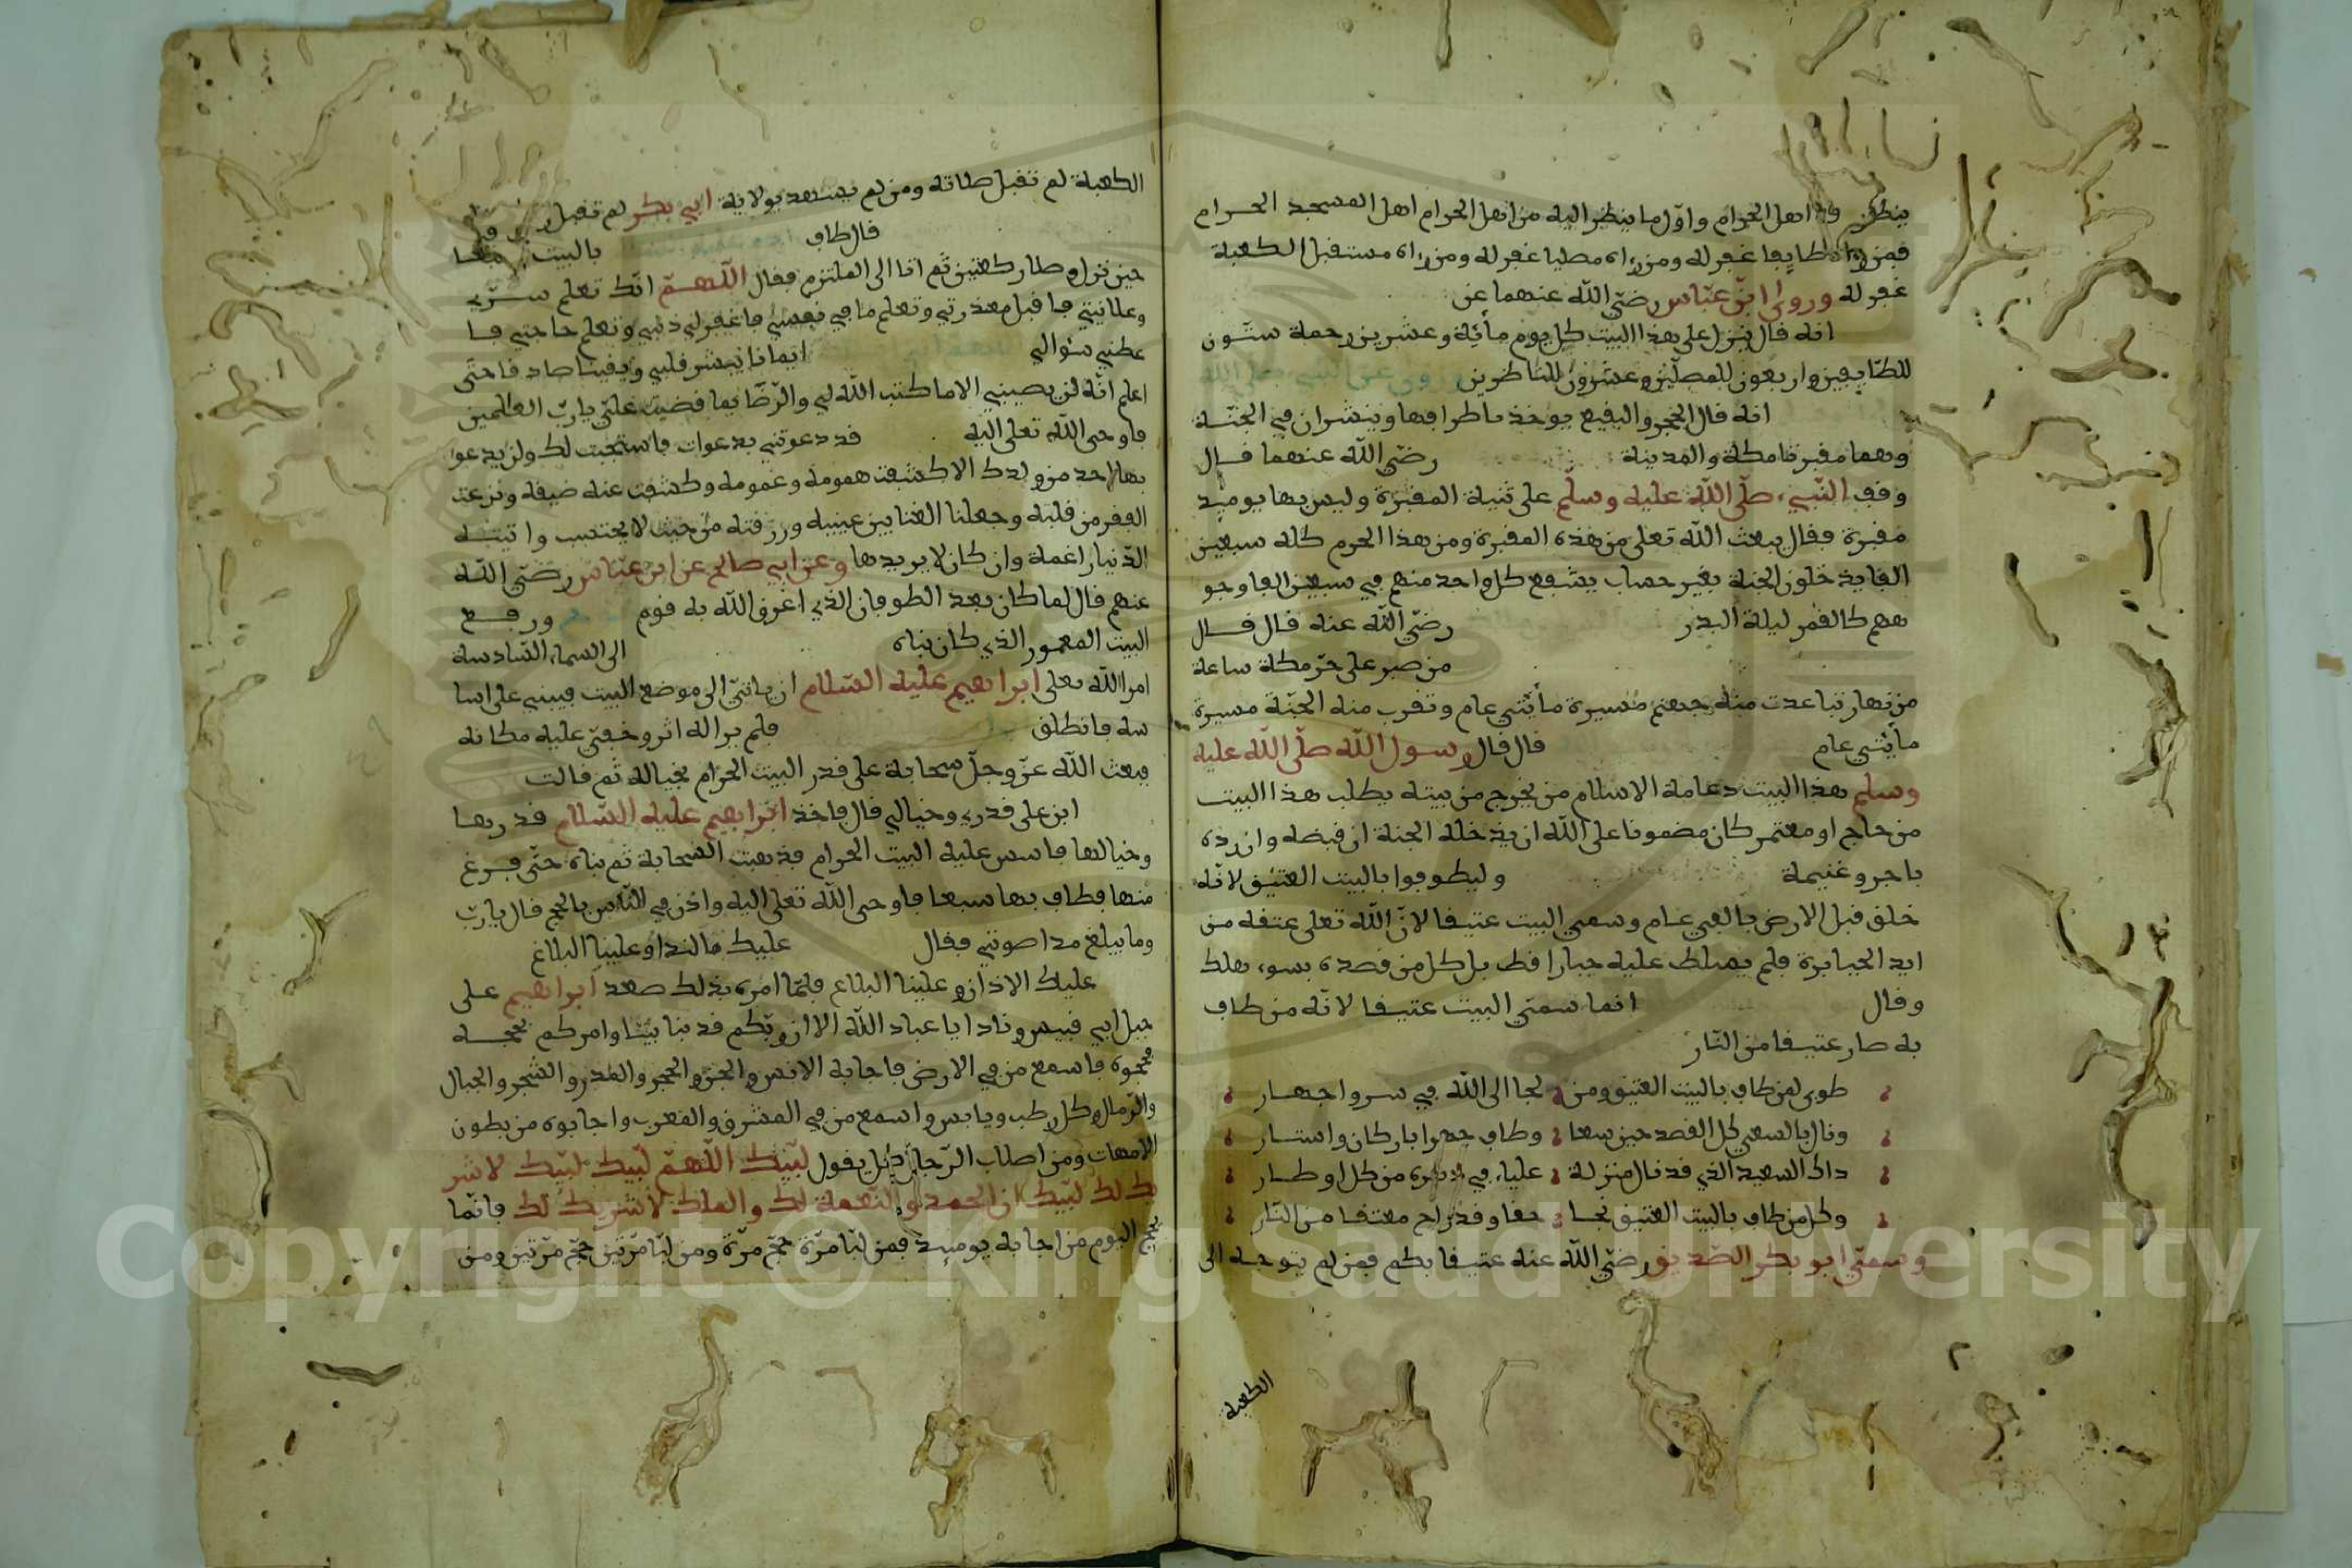 ينظر اهل الحرام واوّل ما ينظر اليه من اهل الحرام اهل المسجد الحرام
فمن راه طايفا غفر له ومن راه مصليا غفر له ومن راه مستقبل الكعبة
غفر له وروى ابن عبّاس رضيّ اللّه عنهما عن
انه قال ينزل على هذا البيت كل يوم مائة وعشرين رحمة ستّون
للطّايفين واربعون للمصلّين وعشرون للناظرين وروى عن النبي صلى الله
انه قال الحجر والبقيع يوخذ باطرافها وينشران في الجنّة
وهما مقبرتا مكة والمدينة رضيّ اللّه عنهما قال
وقف النّبيء صلّى اللّه عليه وسلّم على ثنية المقبرة وليس بها يوميذ
مقبرة فقال يبعث اللّه تعلى من هذه المقبرة ومن هذا الحرم كله سبعين
الفا يدخلون الجنة بغير حساب يشفع كل واحد منهم في سبعين الفا وجو
ههم كالقمر ليلة البدر رضيّ اللّه عنه قال قال
من صبر على حرّ مكة ساعة
من نهار تباعدت منه جهنم مسيرة مأيتي عام وتقرب منه الجنّة مسيرة
مأيتي عام قال قال رسول اللّه صلّى اللّه عليه
وسلم هذا البيت دعامة الاسلام من يخرج من بيته يطلب هذا البيت
من حاج او معتمر كان مضمونا على اللّه ان يدخله الجنة ان قبضه وان رده
باجر وغنيمة وليطوفوا بالبيت العتيق لانّه
خلق قبل الارض بالفي عام وسمي البيت عتيقا لانّ اللّه تعلى عتقه من
ايد الجبابرة فلم يصلط عليه جبارا قط بل كل من قصده بسوء هلك
وقال انما سمّي البيت عتيقا لانّه من طاف
به صار عتيقا من النّار
طوبى لمن طاف بالبيت العتيق ومن لجا الى اللّه في سر واجهار
ونال بالسعي كل القصد حين سعا وطاف جهرا باركان واستار
ذاك السعيد الذي قد نال منزلة علياء في من كل اوطار
وكل من طاف بالبيت العتيق نجا حقا وقد راح معتقا من النّار
وسمّي ابو بكر الصّديق رضيّ اللّه عنه عتيقا بكم فمن لم يتوجه الى
الكعبة
الكعبة لم تقبل صلاته ومن لم يستعد بولاية ابي بكر لم تقبل
قال طاف بالبيت سبعا
حين نزل وصلا ركعتين ثم اتا الى الملتزم فقال اللّهمّ انّك تعلم سرّي
وعلانيتي فاقبل معذرتي وتعلم ما في نفسي فاغفر لي ذنبي وتعلم حاجتي فا
عطني سؤالي ايمانا يبشر قلبي ويقينا صادقا حتّى
اعلم انّه لن يصيبني الا ما كتب اللّه لي والرّضا بما قضيت عليّ يا ربّ العلمين
فاوحى اللّه تعلى اليه قد دعوتني بدعوات فاستجبت لك ولن يدعوا
بها احد من ولدك الا كشفت همومه وغمومه وكشفت عنه ضيقه ونزعت
الفقر من قلبه وجعلنا الغنا بين عينيه ورزقته من حيث لا يحتسب واتيته
الدّنيا راغمة وان كان لا يريدها وعن ابي صالح عن ابن عبّاس رضيّ اللّه
عنهم قال لما كان بعد الطوفان الذي اغرق اللّه به قوم ورفع
البيت المعمور الذي كان بناه الى السماء السّادسة
امر اللّه تعلى ابراهيم عليه السّلام ان ياتيّ الى موضع البيت فيبني على اسا
سه فانطلق فلم ير اله اثر وخفيّ عليه مكانه
فبعث اللّه عزّ وجلّ سحابة على قدر البيت الحرام بحياله ثم قالت
ابن على قدري وحيالي قال فاخذ ابراهيم عليه السّلام قدرها
وحيالها فاسس عليه البيت الحرام فذهبت السحابة ثم بناه حتّى فرغ
منها فطاف بها سبعا فاوحى اللّه تعلى اليه واذن في النّاس بالحج قال يا ربّ
وما يبلغ مدا صوتي فقال عليك مالندا وعلينا البلاغ
عليك الاذان وعلينا البلاغ فلمّا امره بذلك صعد ابراهيم على
جبل ابي قبيس ونادا يا عباد اللّه الا ان ربّكم قد بنا بيتا وامركم بحجه
فحجوه فاسمع من في الارض فاجابه الانس والجن والحجر والمدر والشجر والجبال
والرّمال وكل رطب ويابس واسمع من في المشرق والمغرب واجابوه من بطون
الامهات ومن اصلاب الرّجال كل يقول لبّيك اللّهمّ لبّيك لبّيك لا شر
يك لك لبّيك ان الحمد والنّعمة لك والملك لا شريك لك فانّما
يحج اليوم من اجابه يوميذ فمن لبّا مرّة حجّ مرّة ومن لبّا مرّتين حجّ مرّتين ومن
Copyright © King Saud University